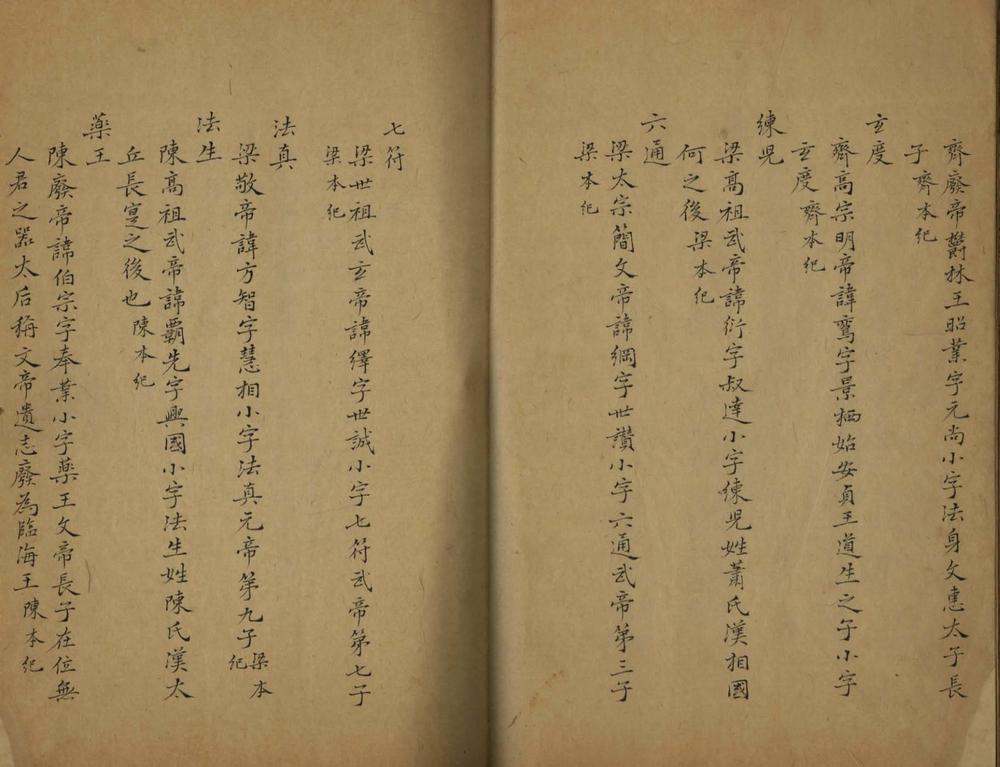 齊廢帝鬱林王昭業字元尚小字法身文惠太子長
子齊本紀
玄度
齊高宗明帝諱鸞字景栖始安貞王道生之子小字
玄度齊本紀
練児
梁高祖武帝諱衍字叔達小字練児姓蕭氏漢相國
何之後梁本紀
六通
梁太宗簡文帝諱綱字世讃小字六通武帝第三子
梁本紀
七符
梁世祖武玄帝諱繹字世誠小字七符武帝第七子
梁本紀
法真
梁敬帝諱方智字慧相小字法真元帝第九子梁本
紀
法生
陳髙祖武帝諱覇先字興國小字法生姓陳氏漢太
丘長寔之後也陳本紀
藥王
陳廢帝諱伯宗字奉業小字藥王文帝長子在位無
人君之器太后稱文帝遺志廢為臨海王陳本紀